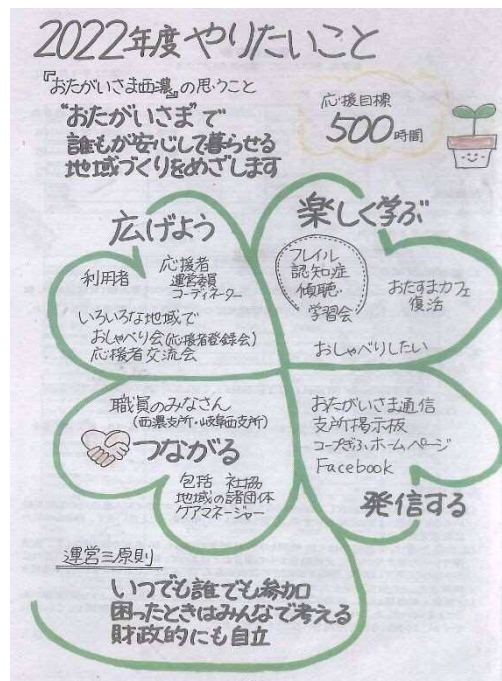 2022年度 やりたいこと
『おたがいさま西濃』の思うこと
“おたがいさま”で
誰もが安心して暮らせる
地域づくりをめざします
応援目標
500時間
広げよう
利用者
応援者
運営委員
コーディネーター
いろいろな地域で
おしゃべり会(応援者登録会)
応援者交流会
楽しく学ぶ
フレイル
認知症
傾聴
学習会
おたすまカフェ
復活
おしゃべりしたい
職員のみなさん
(西濃支所・岐阜西支所)
つながる
包括 社協
地域の諸団体
ケアマネージャー
おたがいさま通信
支所掲示板
コープぎふホームページ
Facebook
発信する
運営三原則
いつでも誰でも参加
困ったときはみんなで考える
財政的にも自立